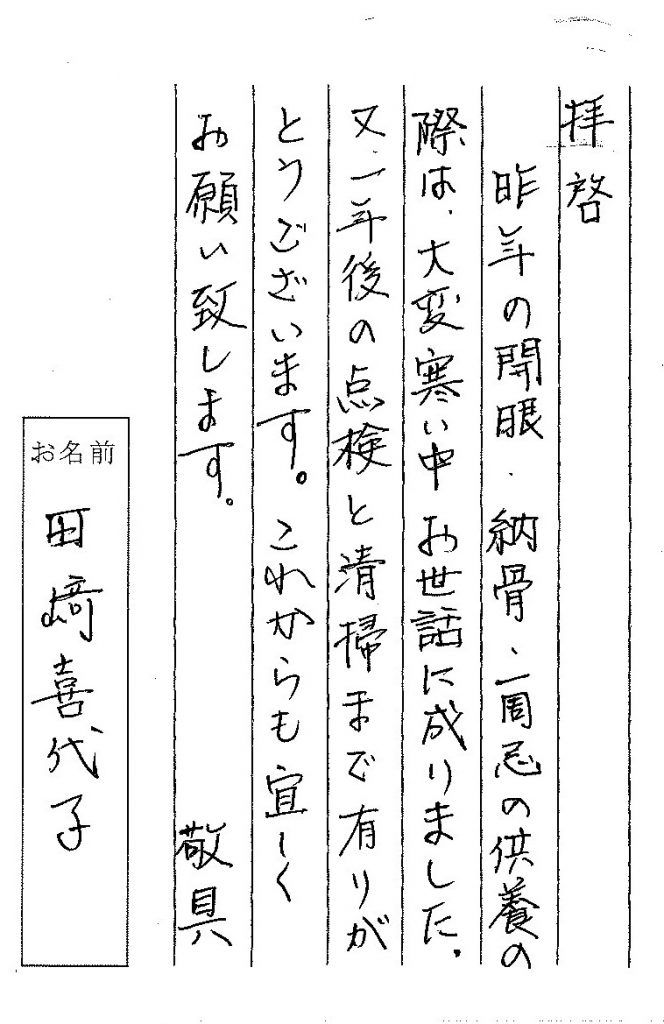 拝啓
昨年の開眼、納骨、一周忌の供養の
際は、大変寒い中お世話に成りました。
又、一年後の点検と清掃まで有りが
とうございます。これからも宜しく
お願い致します。　敬具
お名前
田﨑喜代子